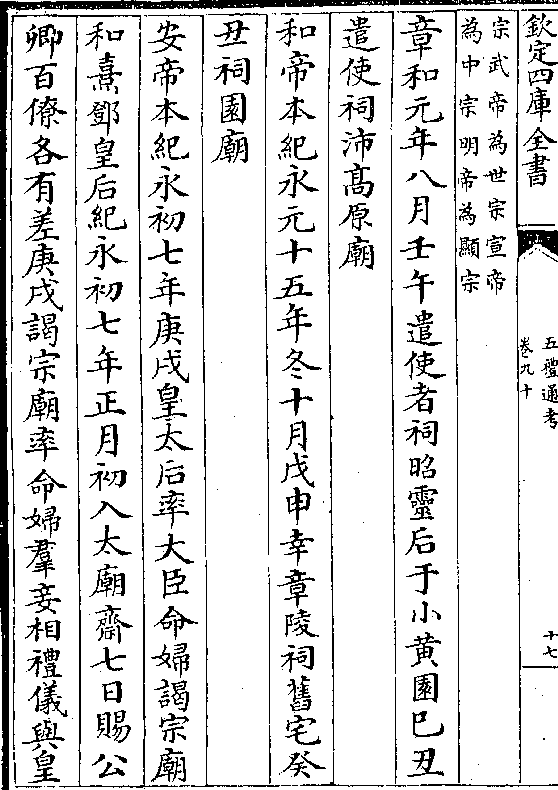 欽定四庫全書
五禮通考
卷九十
十七
宗武帝為世宗宣帝
為中宗明帝為顯宗
章和元年八月壬午遣使者祠昭靈后于小黃園巳丑
遣使祠沛高原廟
和帝本紀永元十五年冬十月戊申幸章陵祠舊宅癸
丑祠園廟
安帝本紀永初七年庚戌皇太后率大臣命婦謁宗廟
和熹鄧皇后紀永初七年正月初入太廟齋七日賜公
卿百僚各有差庚戌謁宗廟率命婦羣妾相禮儀與皇